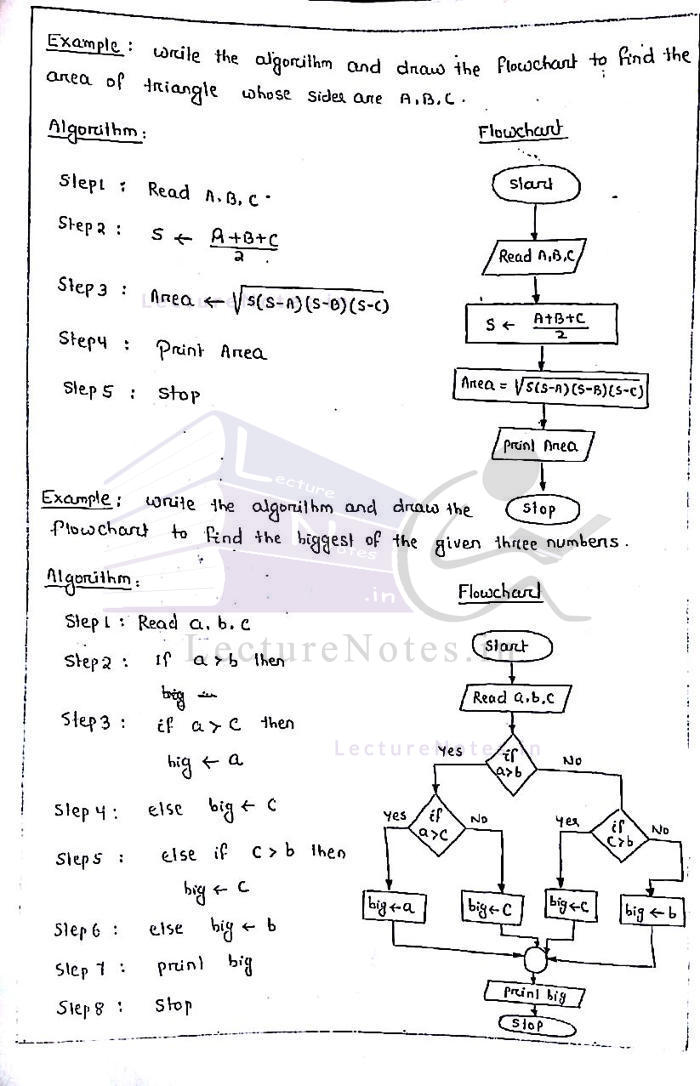 Example: write the algorithm and draw the flowchart to find the
area of triangle whose sides are A,B,C.
Algorithm:
Step1 : Read A,B,C.
Step2 : S ← A+B+C
2
Step3 : Area ← √S(S-A)(S-B)(S-C)
Step4 : Print Area
Step5 : Stop
Flowchart
Start
Read A,B,C
S ← A+B+C
2
Area = √S(S-A)(S-B)(S-C)
print Area
Stop
Example: write the algorithm and draw the
flowchart to find the biggest of the given three numbers.
Algorithm:
Step1 : Read a,b,c
Step2 : If a>b then
big
Step3 : if a>c then
big ← a
Step4 : else big ← c
Step5 : else if c>b then
big ← c
Step6 : else big ← b
Step7 : print big
Step8 : Stop
Flowchart
Start
Read a,b,c
Yes if a>b No
Yes if a>c No
yes if c>b No
big←a
big←c
big←c
big←b
print big
Stop
Lecture
Notes
.in
LectureNotes.in
LectureNotes.in